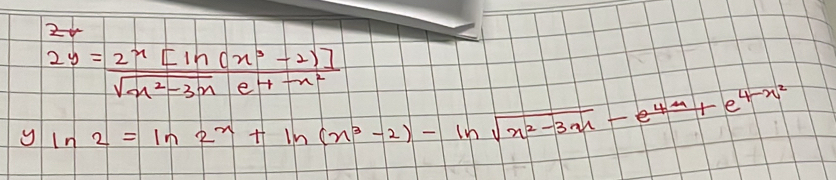 2y
2y = 2^x [ln (x³ - 2)] / √x² - 3x e^4 - x²
y ln 2 = ln 2^x + ln (x³ - 2) - ln √x² - 3x - e^4-x²